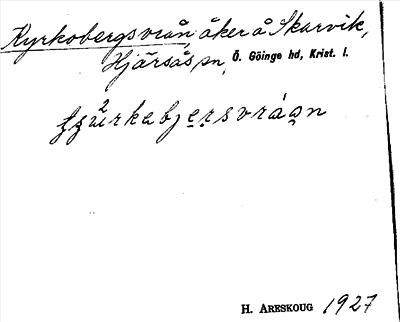 Kyrkobergsvrån, åker å Skarvik,
Hjärsås sn, Ö. Göinge hd, Krist. l.
H. ARESKOUG 1927